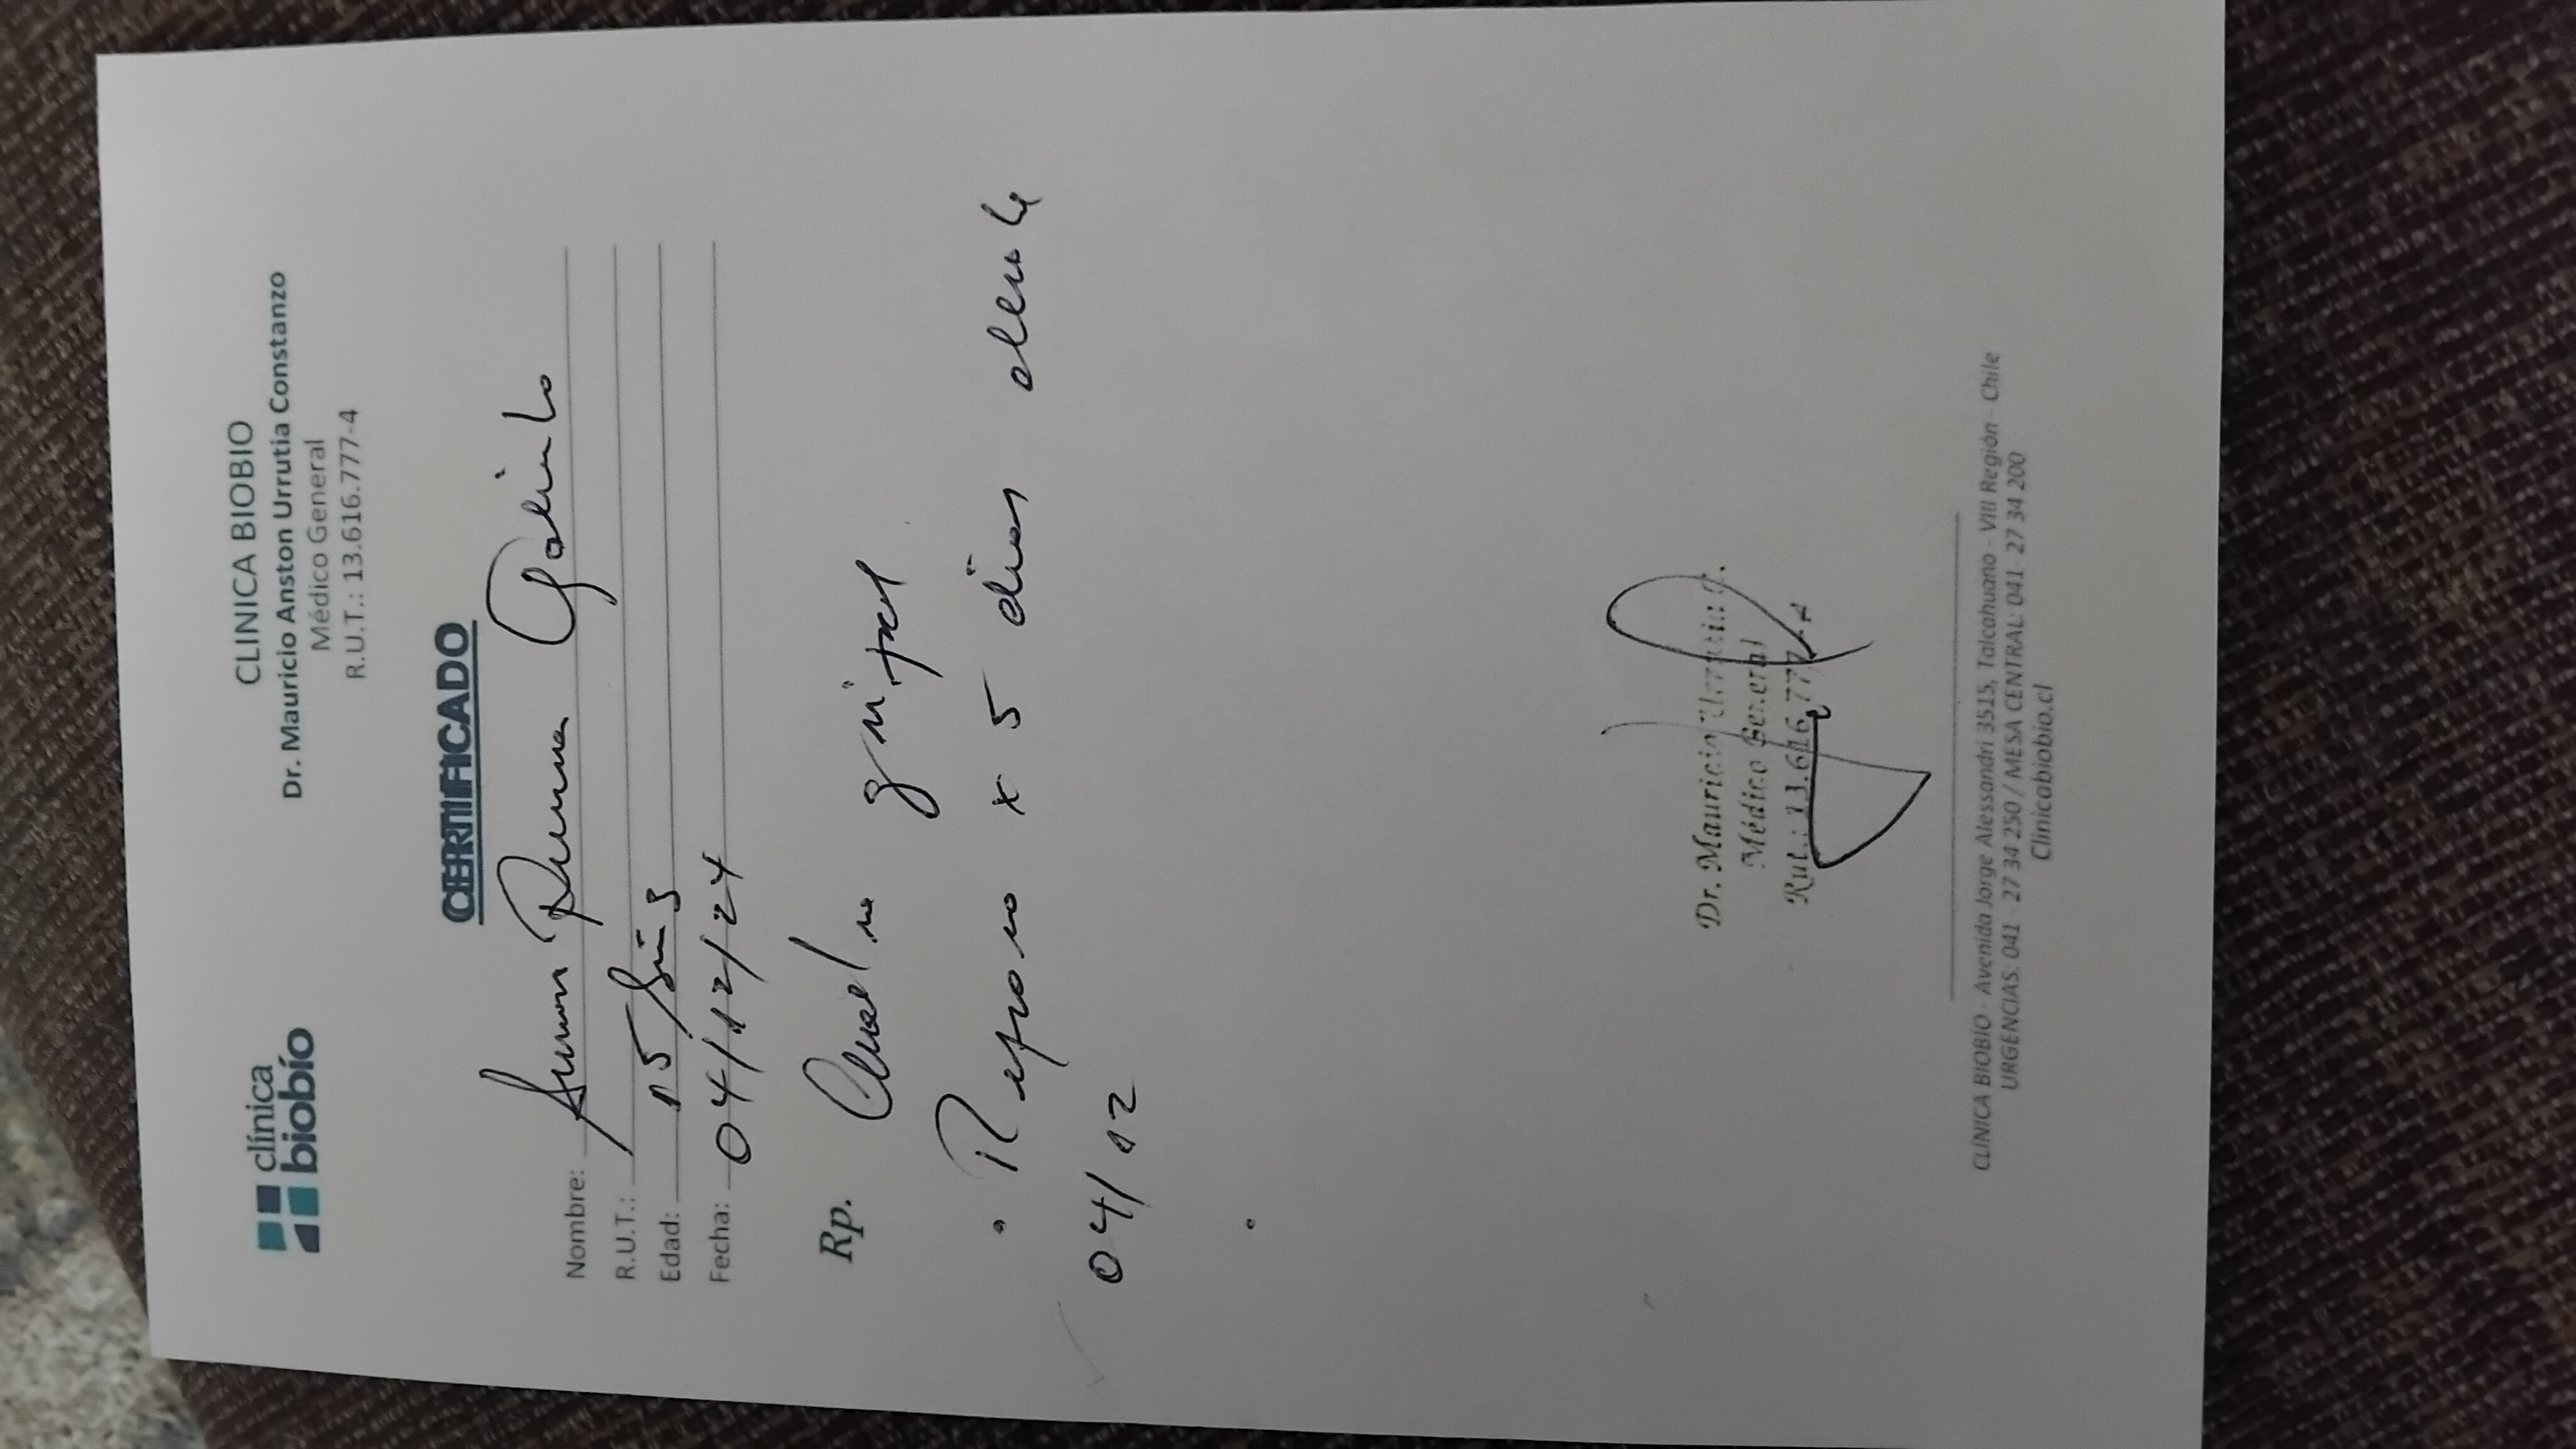 clínica
biobío
CLINICA BIOBIO
Dr. Mauricio Anston Urrutia Constanzo
Médico General
R.U.T.: 13.616.777-4
CERTIFICADO
Nombre:
R.U.T.:
Edad: 15
Fecha: 04/12/24
Rp. gripal
• Reposo x 5 días desde
04/12
•
Dr. Mauricio Urrutia C.
Médico General
Rut.: 13.616.777-4
CLÍNICA BIOBIO - Avenida Jorge Alessandri 3515, Talcahuano - VIII Región - Chile
URGENCIAS: 041 - 27 34 250 / MESA CENTRAL: 041- 27 34 200
Clinicabiobio.cl